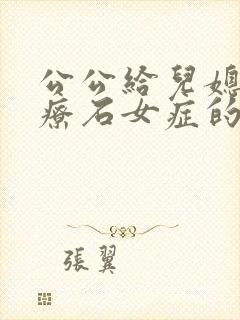 公公給兒媳
療石女症的
張翼